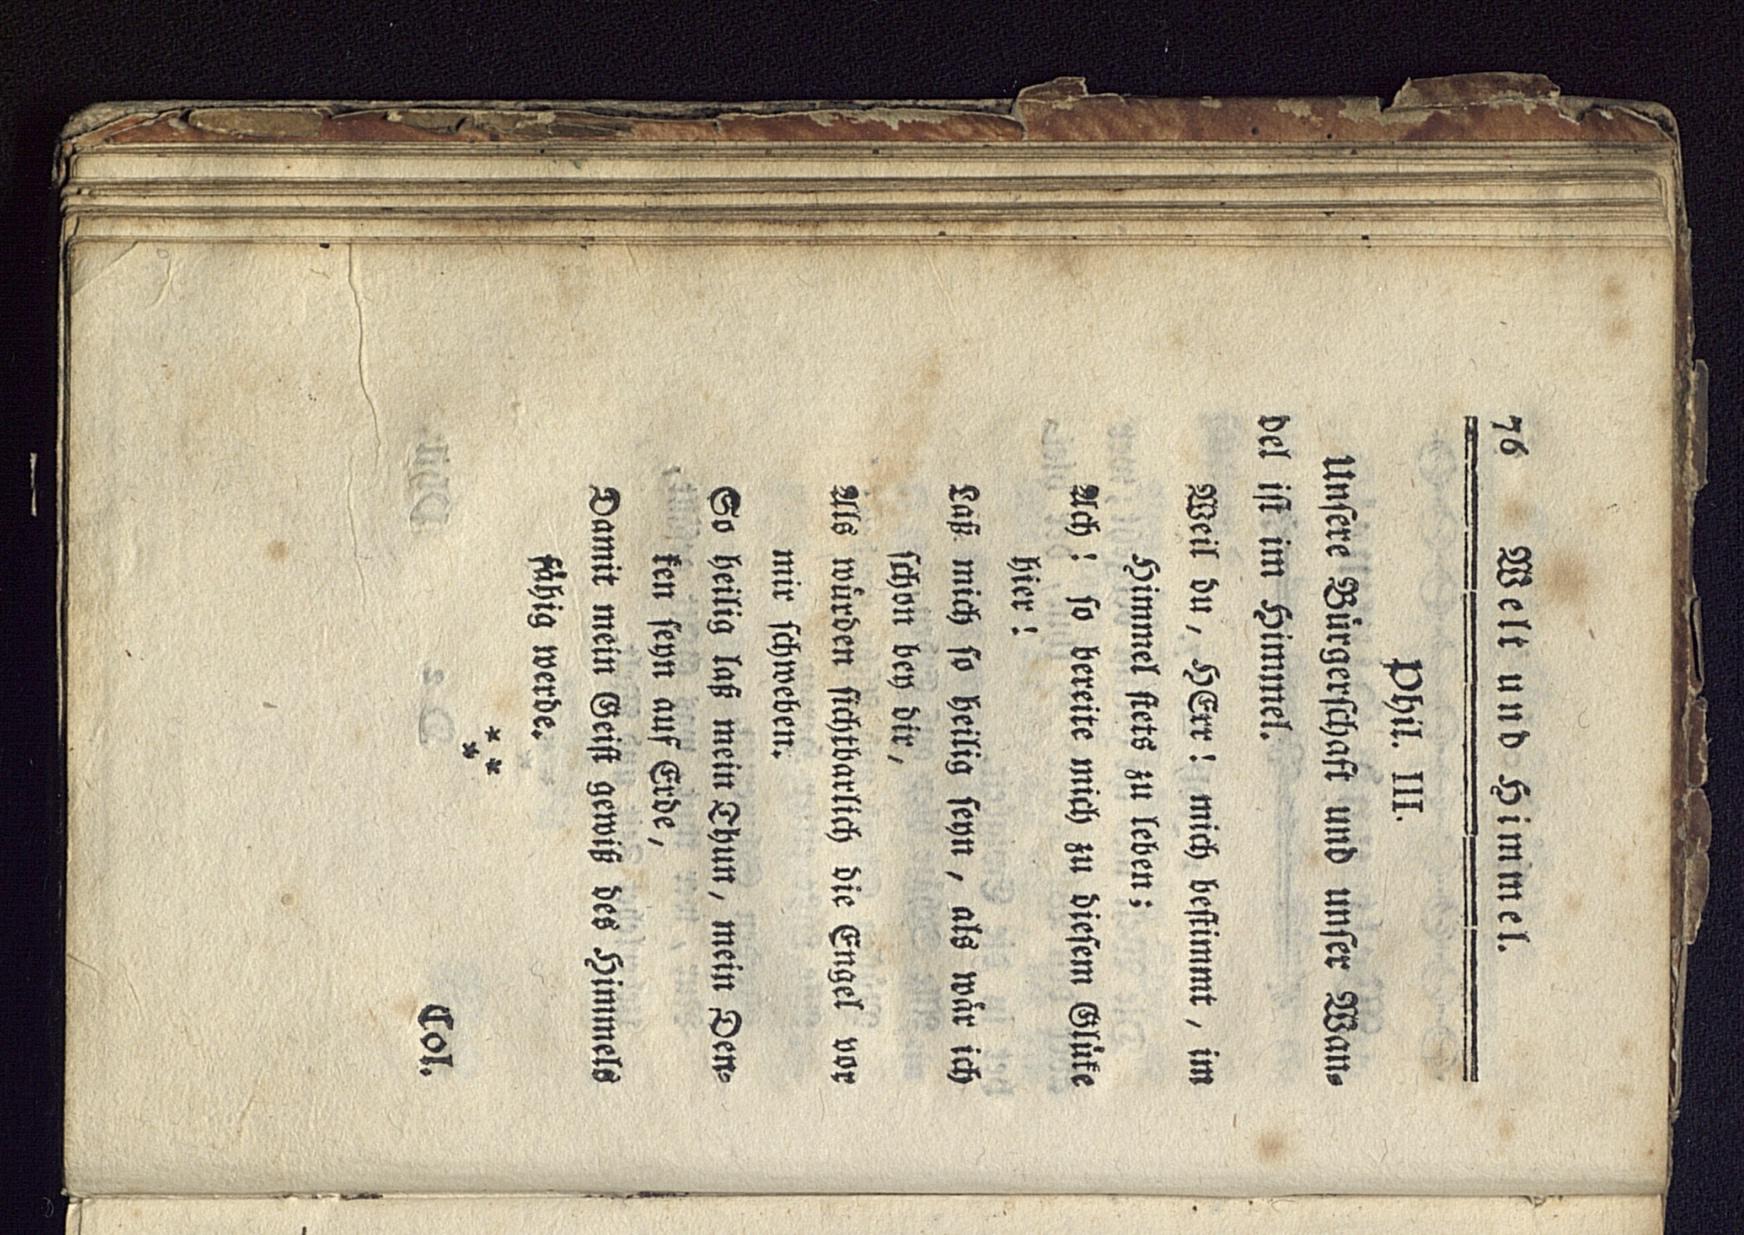 76 Welt und Himmel.
Phil. III.
Unſere Bürgerſchaft und unſer Wan-
del iſt im Himmel.
Weil du, HErr! mich beſtimmt, im
Himmel ſtets zu leben;
Ach! ſo bereite mich zu dieſem Glüke
hier!
Laß mich ſo heilig ſeyn, als wär ich
ſchon bey dir,
Als würden ſichtbarlich die Engel vor
mir ſchweben.
So heilig laß mein Thun, mein Den-
ken ſeyn auf Erde,
Damit mein Geiſt gewiß des Himmels
fähig werde.
* * *
Col.